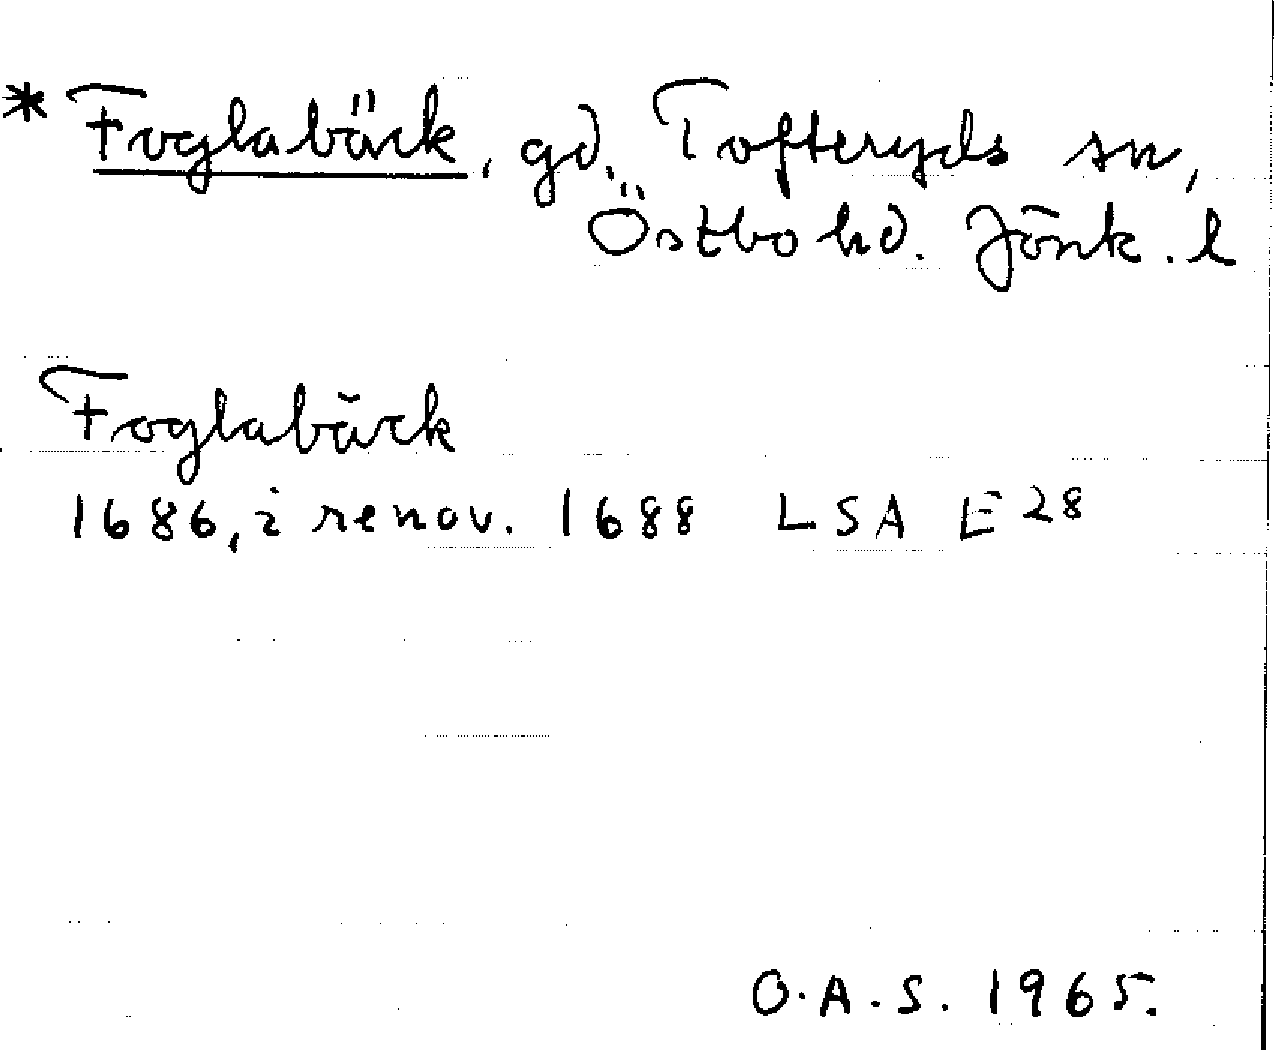 * Foglabäck, gd. Tofteryds sn,
Östbo hd. Jönk. l
Foglabäck
1686, i renov. 1688 LSA E 28
O.A.S. 1965.